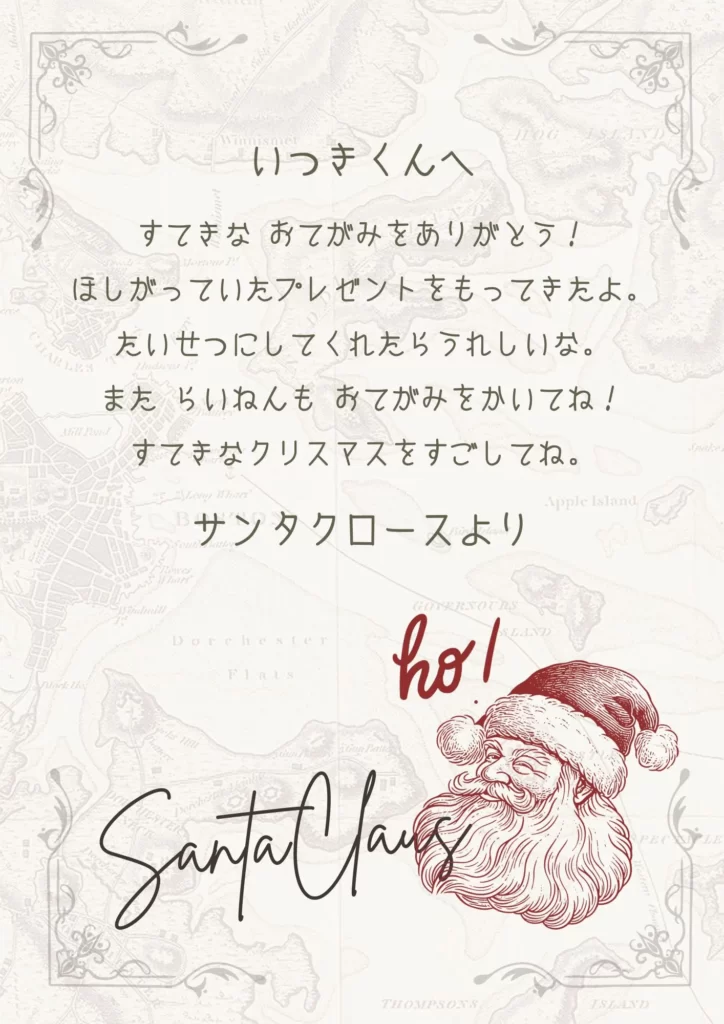 いつきくんへ
すてきな おてがみをありがとう！
ほしがっていたプレゼントをもってきたよ。
たいせつにしてくれたらうれしいな。
また らいねんも おてがみをかいてね！
すてきなクリスマスをすごしてね。
サンタクロースより
ho!
Santa Claus
Winnisimet
HOG ISLAND
CHARLES
Mill Pond
Long Wharf
Apple Island
Windmill
GOVERNOURS
ISLAND
Dorchester
Flats
THOMPSONS
ISLAND